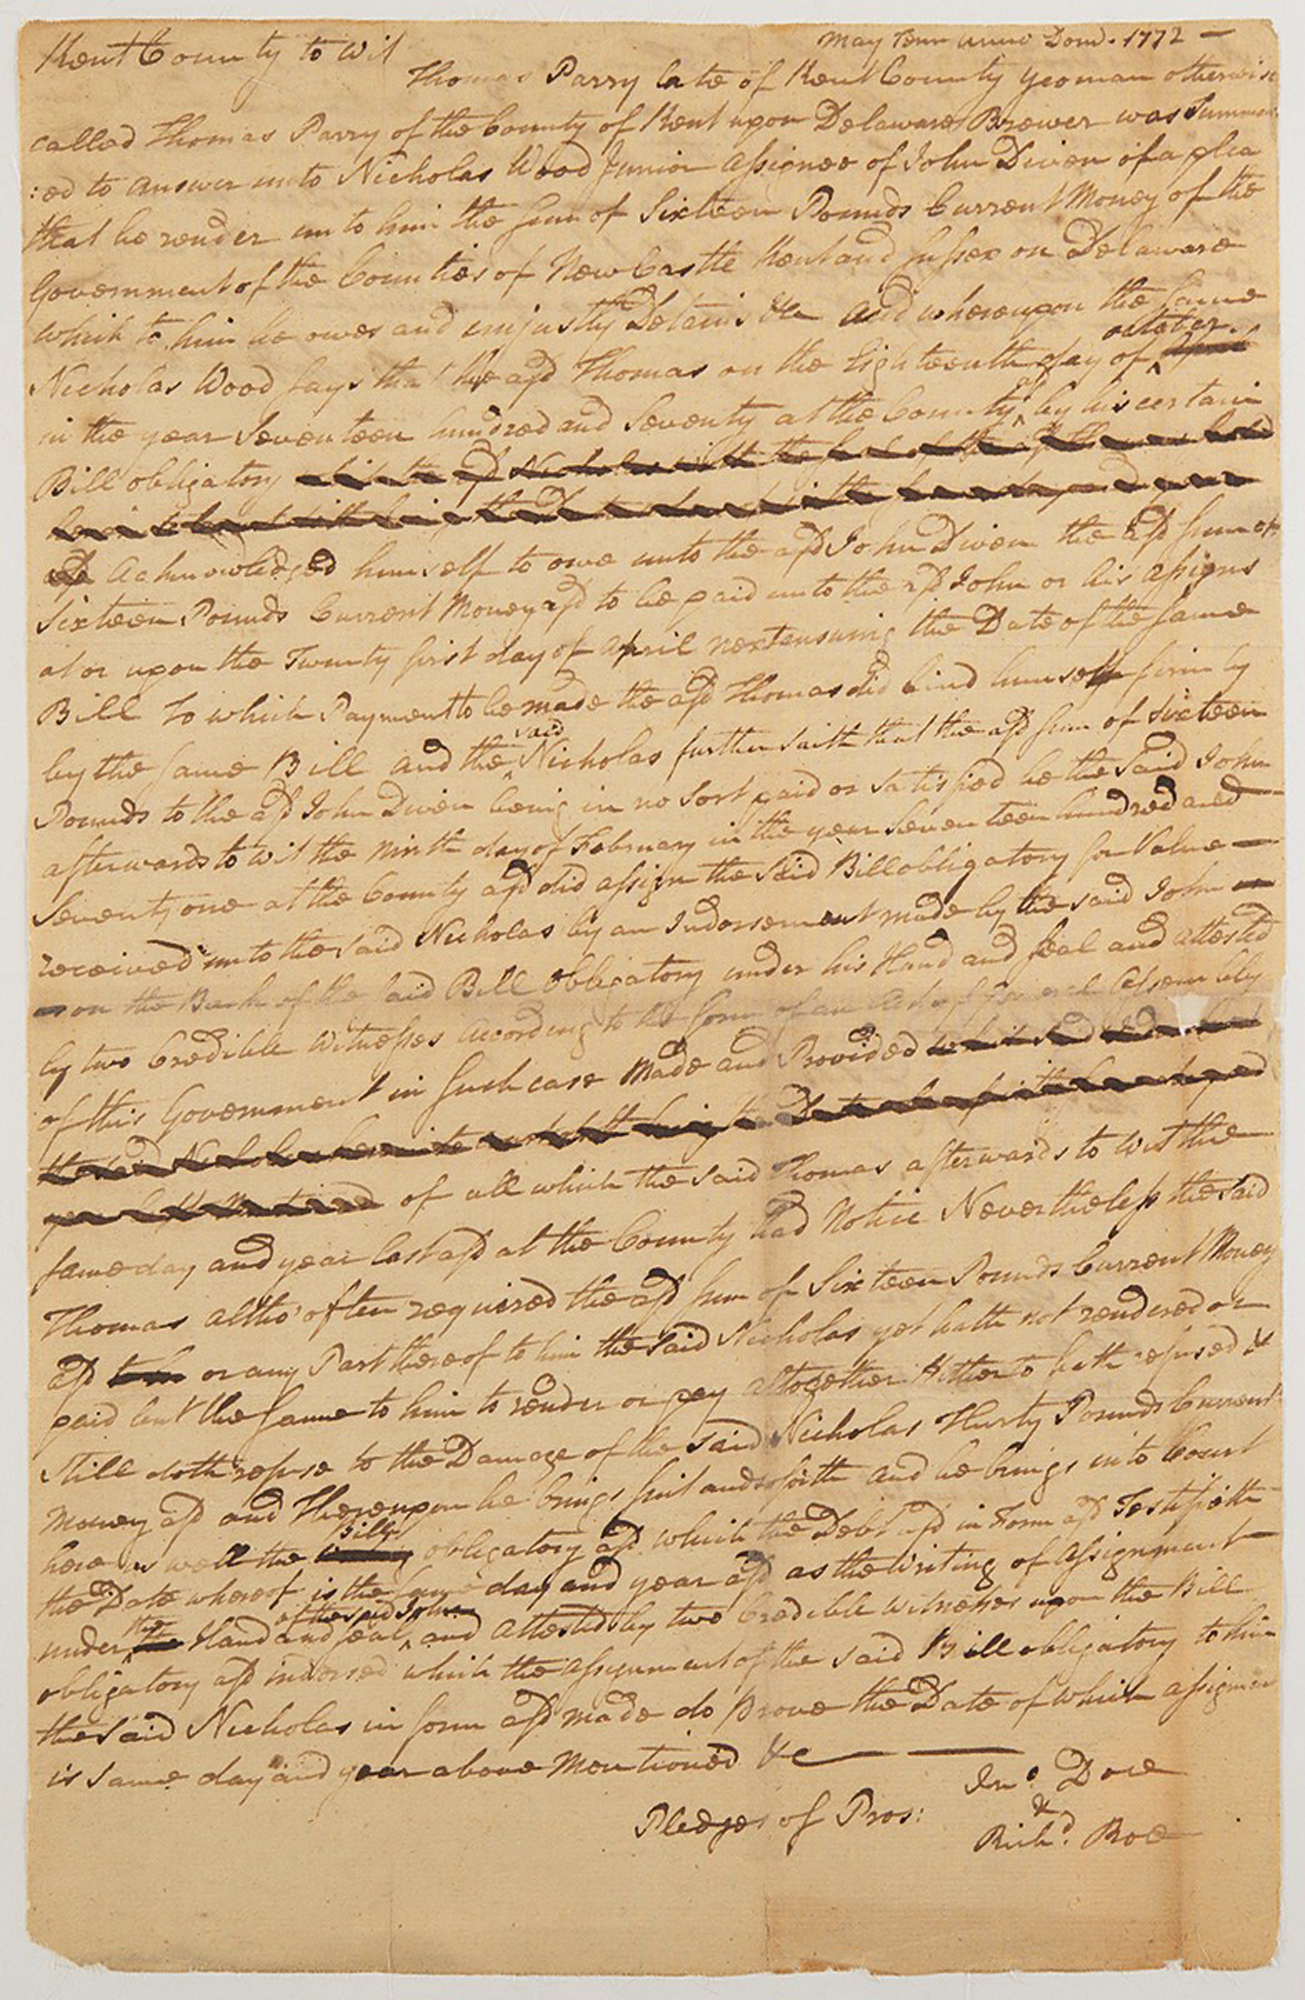 Kent County to Wit
May Term Anno Domi. 1772 —
Thomas Parry late of Kent County yeoman otherwise
called Thomas Parry of the County of Kent upon Delaware Brewer was Summon
:ed to answer unto Nicholas Wood Junior Assignee of John Diven of a plea
that he render unto him the Sum of Sixteen Pounds Current Money of the
Government of the Counties of New Castle Kent and Sussex on Delaware
which to him he owes and unjustly Detains &c And whereupon the Same
october
Nicholas Wood says that the afd Thomas on the Eighteenth day of
in the year Seventeen hundred and Seventy at the County afd by his certain
Bill obligatory
Acknowledged himself to owe unto the afd John Diven the afd Sum of
Sixteen Pounds Current Money afd to be paid unto the afd John or his assigns
at or upon the Twenty first day of April next ensuing the Date of the same
Bill to which Payment to be made the afd Thomas did bind himself firmly
said
by the same Bill and the Nicholas further saith that the afd sum of sixteen
Pounds to the afd John Diven being in no sort paid or satisfied he the said John
afterwards to wit the ninth day of February in the year seventeen hundred and
Seventy one at the County afd did assign the said Bill obligatory for Value —
received unto the said Nicholas by an Indorsement made by the said John —
— on the Back of the said Bill obligatory under his Hand and seal and attested
by two Credible Witnesses according to the form of an Act of General Assembly
of this Government in such case made and Provided
of all which the said Thomas afterwards to wit the
same day and year last afd at the County had Notice Nevertheless the said
Thomas altho' often required the afd sum of Sixteen Pounds Current Money
afd or any Part thereof to him the said Nicholas yet hath not rendered or
paid but the same to him to render or pay altogether Hitherto hath refused &
still doth refuse to the Damage of the said Nicholas Thirty Pounds Current
Money afd and Thereupon he brings suit and so forth and he brings into Court
Bill
here as well the obligatory afd which the Debt afd in Form afd Testifieth
the Date whereof is the same day and year afd as the Writing of Assignment —
the of the said John
under Hand and seal and attested by two Credible witnesses upon the Bill
obligatory afd indorsed which the assignment of the said Bill obligatory to him
the said Nicholas in form afd made do prove the Date of which assignment
is same day and year above mentioned &c —
Pledges of Pros:
Jno. Doe
&
Richd. Roe